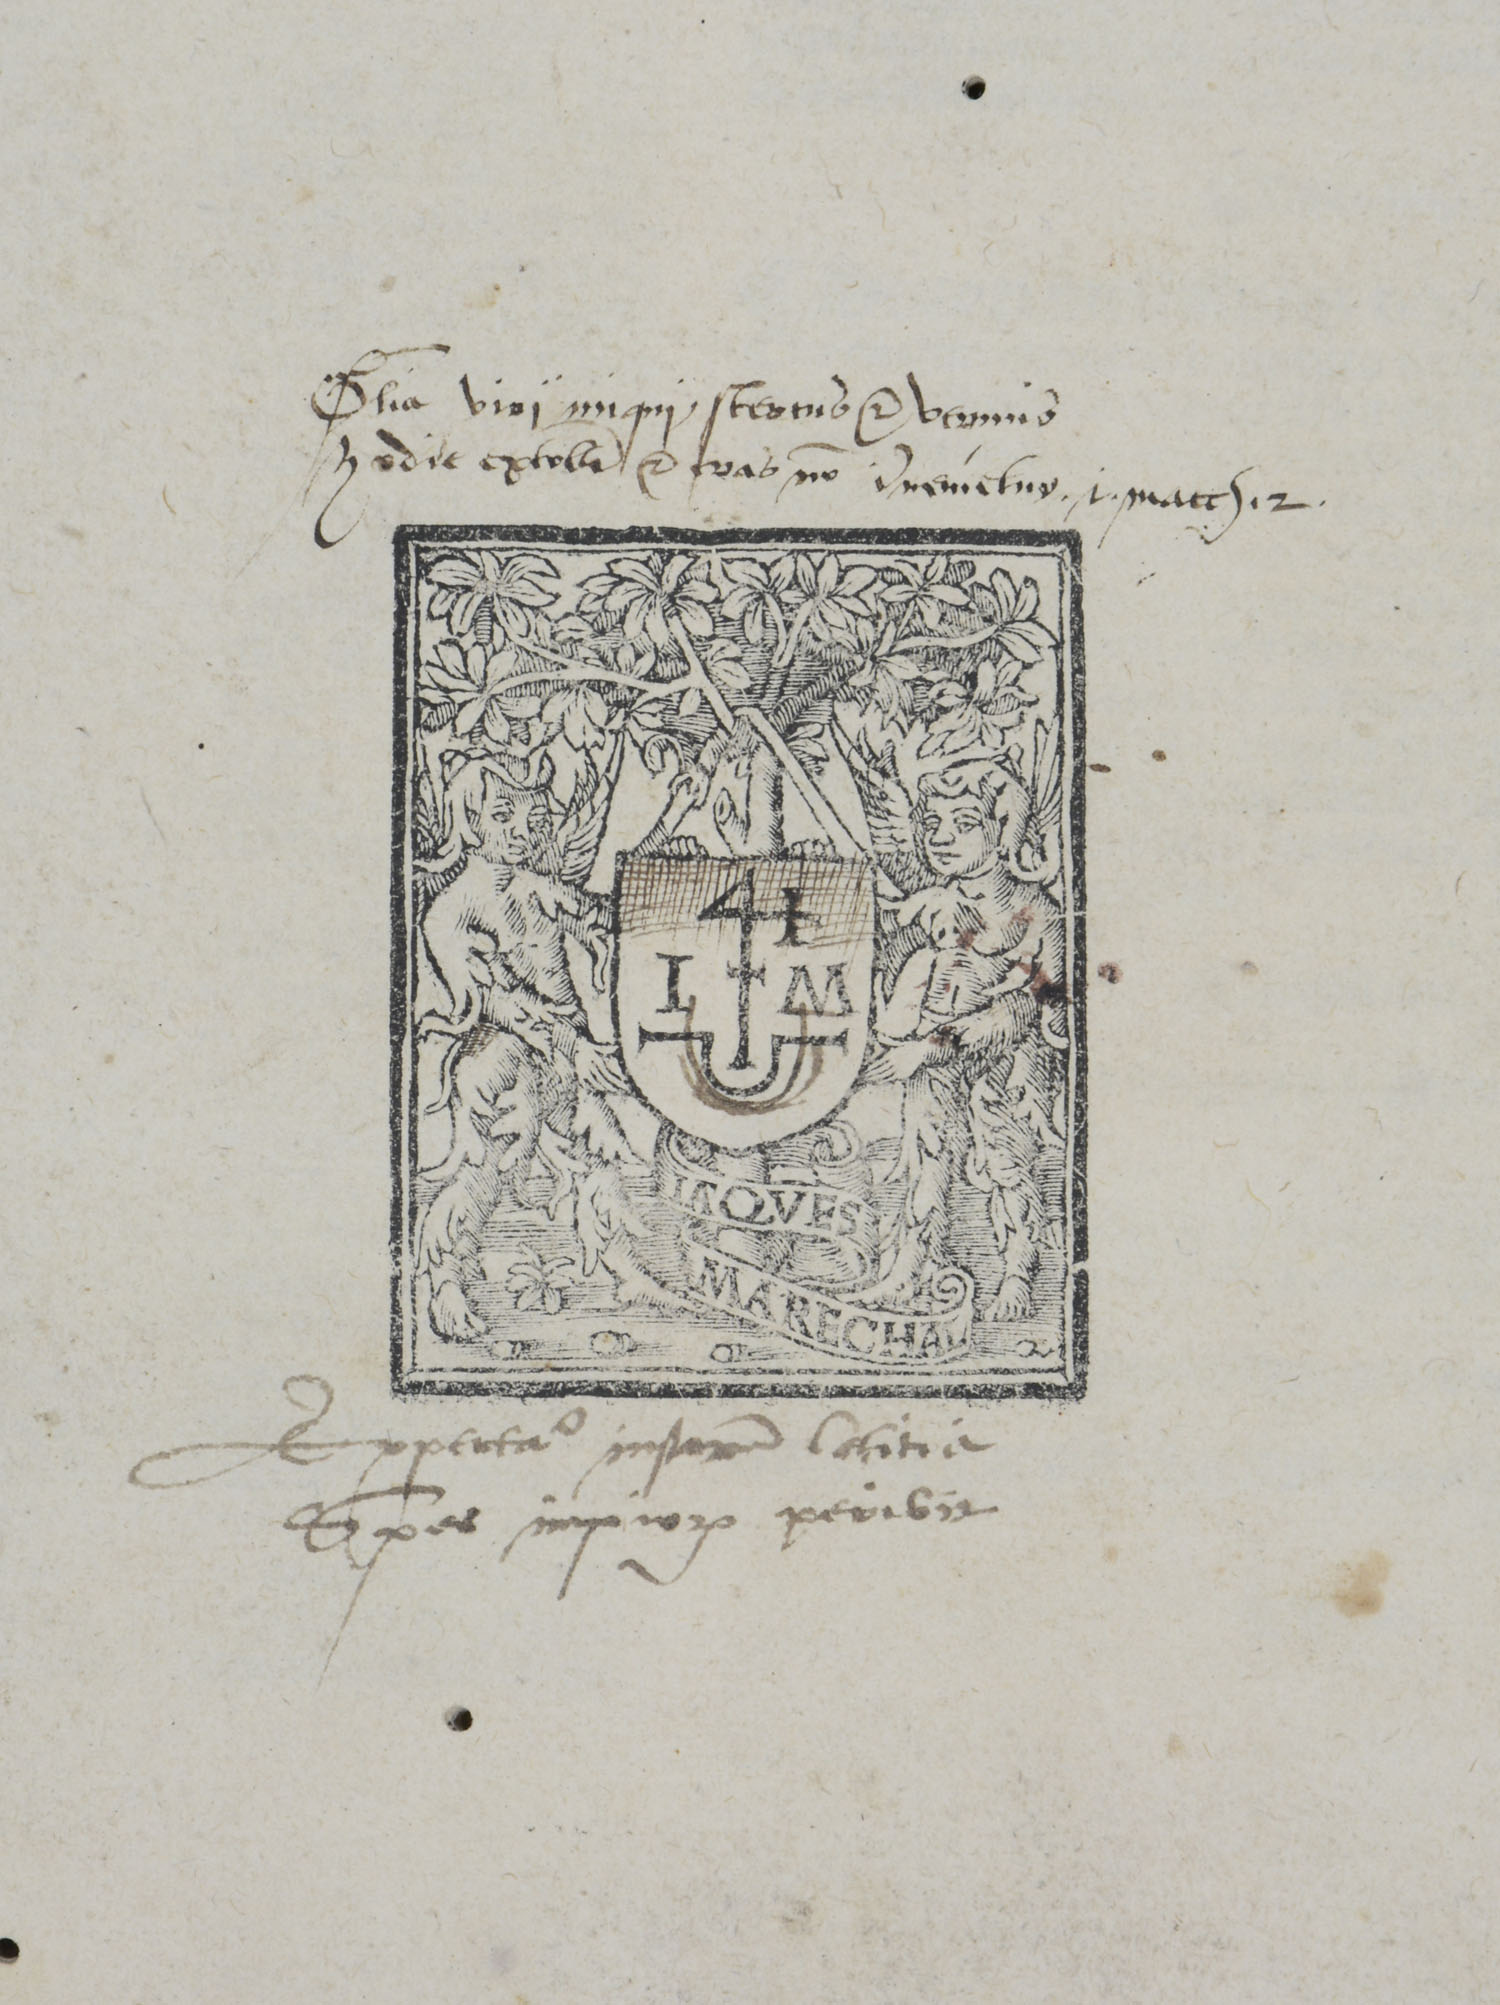 Glia viri iniqui stercus & vermis
hodie extollit & cras nō īvenietur. i. macch 2.
I M
IAQVES
MARECHAL
Expectatº iustorū letitia
Spes impiorꝝ peribit